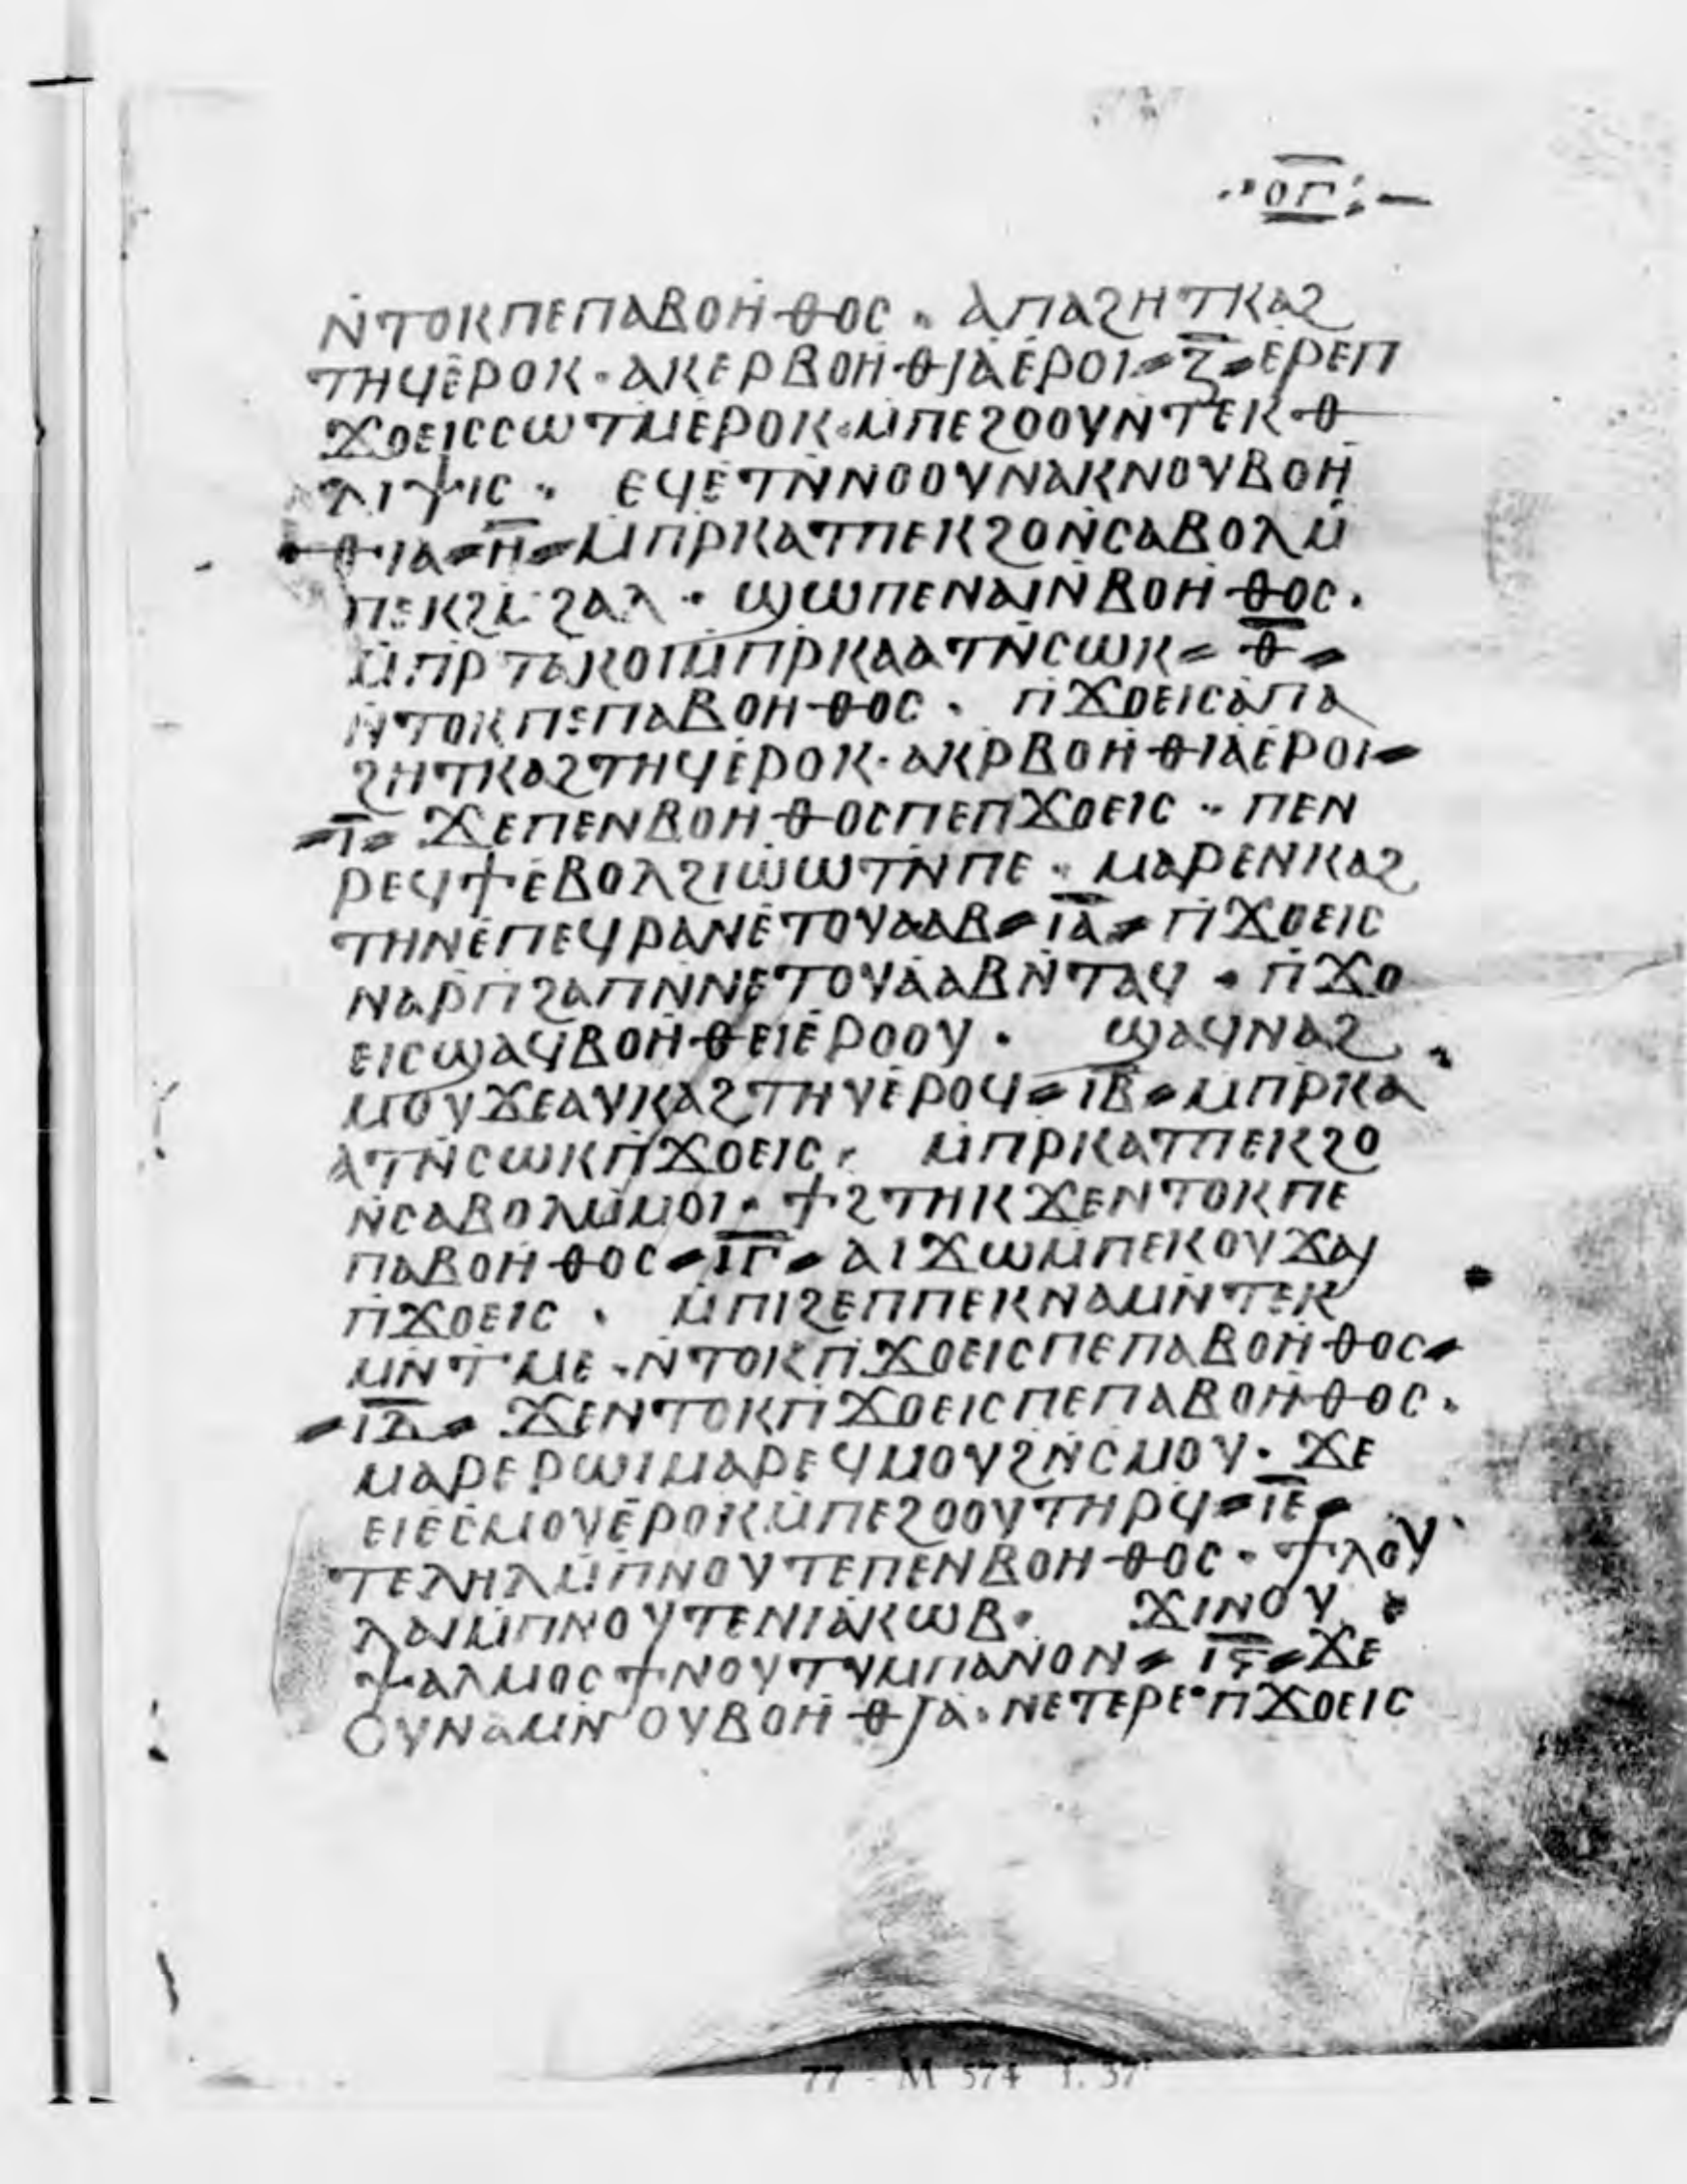 ·ⲟⲅ:—
ⲛ̇ⲧⲟⲕⲡⲉⲡⲁⲃⲟⲏ̇ⲑⲟⲥ · ⲁⲡⲁϩⲏⲧⲕⲁϩ
ⲧⲏϥⲉ̇ⲣⲟⲕ · ⲁⲕⲉⲣⲃⲟⲏ̇ⲑⲓⲁ̇ⲉ̇ⲣⲟⲓ = ⲍ̅ = ⲉⲣⲉⲡ
ϫⲟⲉⲓⲥⲥⲱⲧⲙⲉ̇ⲣⲟⲕ · ⲙ̇ⲡⲉϩⲟⲟⲩⲛ̇ⲧⲉⲕⲑ
ⲗⲓⲯⲓⲥ · ⲉϥⲉ̇ⲧⲛ̇ⲛⲟⲟⲩⲛⲁⲕⲛⲟⲩⲃⲟⲏ̇
ⲑⲓⲁ = ⲏ̅ = ⲙ̇ⲡⲣ̇ⲕⲁⲧⲡⲉⲕϩⲟⲛ̇ⲥⲁⲃⲟⲗⲙ̇
ⲡⲉⲕϩⲙ̇ϩⲁⲗ · ϣⲱⲡⲉⲛⲁⲓⲛ̇ⲃⲟⲏ̇ⲑⲟⲥ ·
ⲙ̇ⲡⲣ̇ⲧⲁⲕⲟⲓⲙ̇ⲡⲣ̇ⲕⲁⲁⲧⲛ̇ⲥⲱⲕ = ⲑ̅ =
ⲛ̇ⲧⲟⲕⲡⲉⲡⲁⲃⲟⲏⲑⲟⲥ · ⲡ̇ϫⲟⲉⲓⲥⲁ̇ⲡⲁ
ϩⲏⲧⲕⲁϩⲧⲏϥⲉ̇ⲣⲟⲕ · ⲁⲕⲣ̇ⲃⲟⲏ̇ⲑⲓⲁ̇ⲉ̇ⲣⲟⲓ =
= ⲓ̅ = ϫⲉⲡⲉⲛⲃⲟⲏ̇ⲑⲟⲥⲡⲉⲡϫⲟⲉⲓⲥ · ⲡⲉⲛ
ⲣⲉϥϯⲉ̇ⲃⲟⲗϩⲓⲱ̇ⲱⲧⲛ̇ⲡⲉ · ⲙⲁⲣⲉⲛⲕⲁϩ
ⲧⲏⲛⲉ̇ⲡⲉϥⲣⲁⲛⲉ̇ⲧⲟⲩⲁⲁⲃ = ⲓ̅ⲁ̅ = ⲡ̇ϫⲟⲉⲓⲥ
ⲛⲁⲣ̇ⲡ̇ϩⲁⲡⲛ̇ⲛⲉ̇ⲧⲟⲩⲁ̇ⲁⲃⲛ̇ⲧⲁϥ · ⲡ̇ϫⲟ
ⲉⲓⲥϣⲁϥⲃⲟⲏ̇ⲑⲉⲓⲉ̇ⲣⲟⲟⲩ · ϣⲁϥⲛⲁϩ
ⲙⲟⲩϫⲉⲁⲩⲕⲁϩⲧⲏⲩⲉ̇ⲣⲟϥ = ⲓ̅ⲃ̅ = ⲙ̇ⲡⲣ̇ⲕⲁ
ⲁⲧⲛ̇ⲥⲱⲕⲡ̇ϫⲟⲉⲓⲥ · ⲙ̇ⲡⲣ̇ⲕⲁⲧⲡⲉⲕϩⲟ
ⲛ̇ⲥⲁⲃⲟⲗⲙ̇ⲙⲟⲓ · ϯϩⲧⲏⲕϫⲉⲛⲧⲟⲕⲡⲉ
ⲡⲁⲃⲟⲏ̇ⲑⲟⲥ = ⲓ̅ⲅ̅ = ⲁⲓϫⲱⲙ̇ⲡⲉⲕⲟⲩϫⲁⲓ
ⲡ̇ϫⲟⲉⲓⲥ · ⲙ̇ⲡⲓϩⲉⲡⲡⲉⲕⲛⲁⲙⲛ̇ⲧⲉⲕ
ⲙⲛ̇ⲧⲙⲉ · ⲛ̇ⲧⲟⲕⲡ̇ϫⲟⲉⲓⲥⲡⲉⲡⲁⲃⲟⲏ̇ⲑⲟⲥ =
= ⲓ̅ⲇ̅ = ϫⲉⲛⲧⲟⲕⲡ̇ϫⲟⲉⲓⲥⲡⲉⲡⲁⲃⲟⲏ̇ⲑⲟⲥ ·
ⲙⲁⲣⲉⲣⲱⲓⲙⲁⲣⲉϥⲙⲟⲩϩⲛ̇ⲥⲙⲟⲩ · ϫⲉ
ⲉⲓⲉ̇ⲥⲙⲟⲩⲉ̇ⲣⲟⲕⲙ̇ⲡⲉϩⲟⲟⲩⲧⲏⲣϥ = ⲓ̅ⲉ̅ =
ⲧⲉⲗⲏⲗⲙ̇ⲡⲛⲟⲩⲧⲉⲡⲉⲛⲃⲟⲏⲑⲟⲥ · ϯⲗⲟⲩ
ⲗⲁⲓⲙ̇ⲡⲛⲟⲩⲧⲉⲛⲓⲁ̇ⲕⲱⲃ · ϫⲓⲛⲟⲩ
ⲯⲁⲗⲙⲟⲥϯⲛⲟⲩⲧⲩⲙⲡⲁⲛⲟⲛ = ⲓ̅ⲋ̅ = ϫⲉ
ⲟⲩⲛⲁⲙⲛ̇ⲟⲩⲃⲟⲏ̇ⲑⲓⲁ̇ · ⲛⲉⲧⲉⲣⲉⲡ̇ϫⲟⲉⲓⲥ
77 - M 574 f. 37ʳ